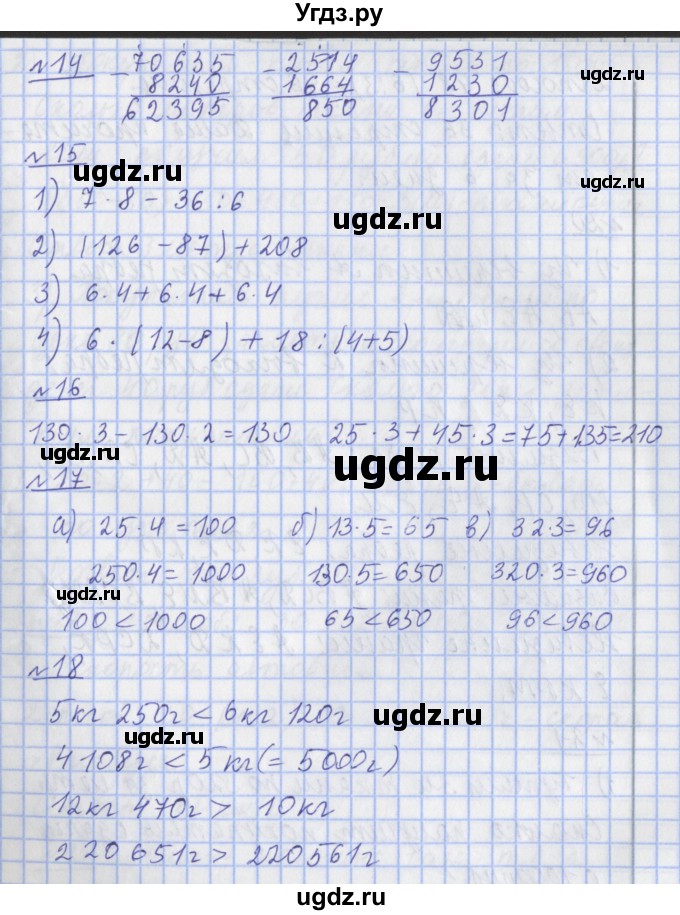 Угдз.ру
№14 - 70635 - 2514 - 9531
8240 1664 1230
62395 850 8301
№15
ugdz.ru
ugdz.ru
1) 7·8 - 36:6
ugdz.ru
2) (126 - 87) + 208
3) 6·4 + 6·4 + 6·4
4) 6·(12-8) + 18:(4+5)
№16
130·3 - 130·2 = 130 25·3 + 45·3 = 75 + 135 = 210
ugdz.ru
ugdz.ru
№17
а) 25·4 = 100 б) 13·5 = 65 в) 32·3 = 96
250·4 = 1000 130·5 = 650 320·3 = 960
ugdz.ru
100 < 1000 65 < 650 96 < 960
№18
5кг 250г < 6кг 120г
ugdz.ru
ugdz.ru
4108г < 5кг (= 5000г)
12кг 470г > 10кг
220651г > 220561г
ugdz.ru